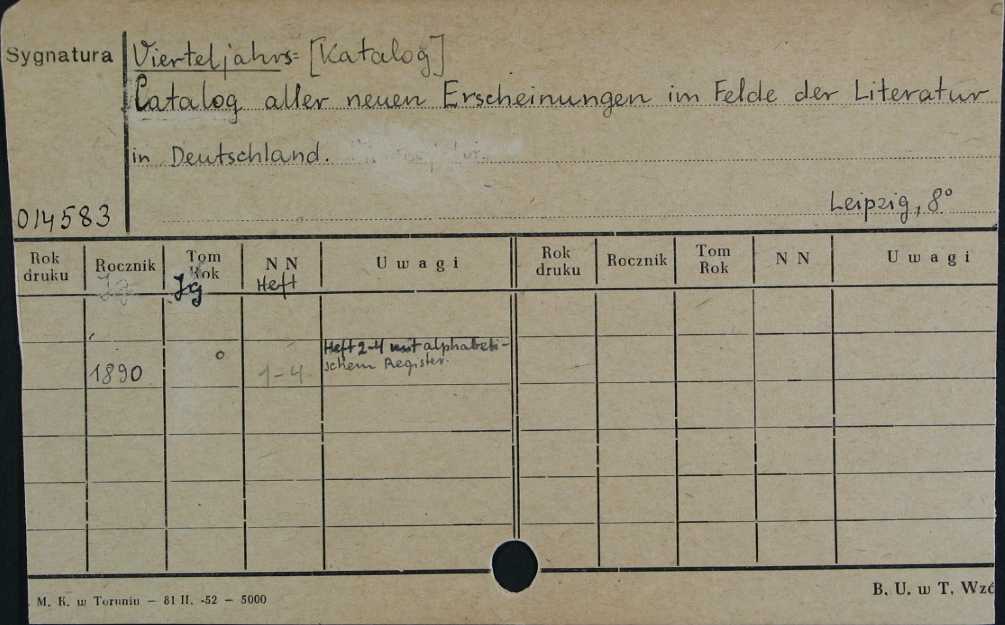 Sygnatura
Vierteljahrs= [Katalog]
Catalog aller neuen Erscheinungen im Felde der Literatur
in Deutschland.
014583
Leipzig, 8°
Rok druku Rocznik Tom Rok N N U w a g i Rok druku Rocznik Tom Rok N N U w a g i
Jg Jg Heft
Heft 2-4 mit alphabeti-
schem Register.
1890 1-4
M. K. w Toruniu — 81 II. -52 — 5000
B. U. w T. Wzó